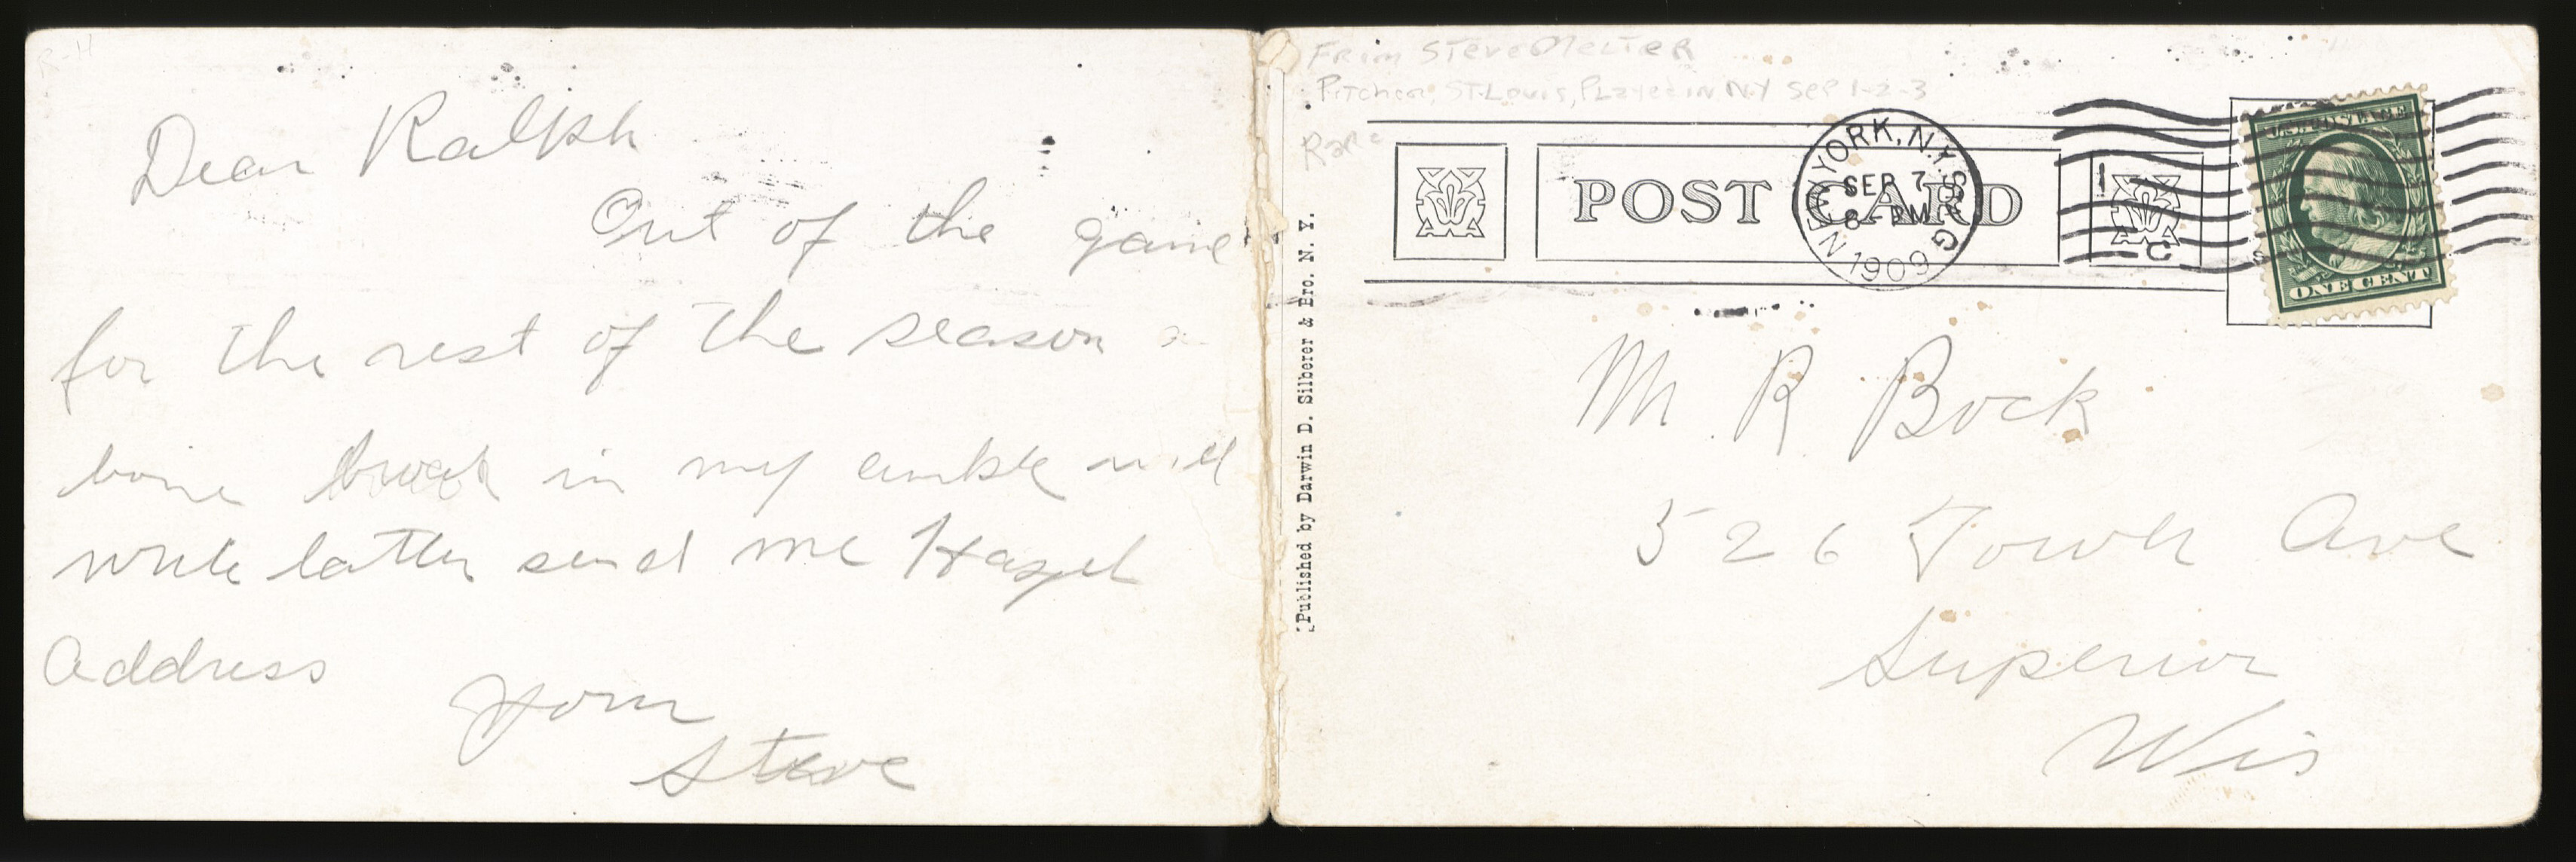 R-H
Dear Ralph
Out of the game
for the rest of the season a
bone broak in my ankle will
write latter send me Hazel
Address
Your
Steve
From Steve Melter
Pitcher, St. Louis, Played in NY Sep 1-2-3
Rare
POST CARD
NEW YORK, N.Y. STA. G
SEP 7
8 - PM
1909
1
C
U.S. POSTAGE
ONE CENT
Published by Darwin D. Silberer & Bro. N. Y.
Mr R Bock
526 Tower Ave
Superior
Wis